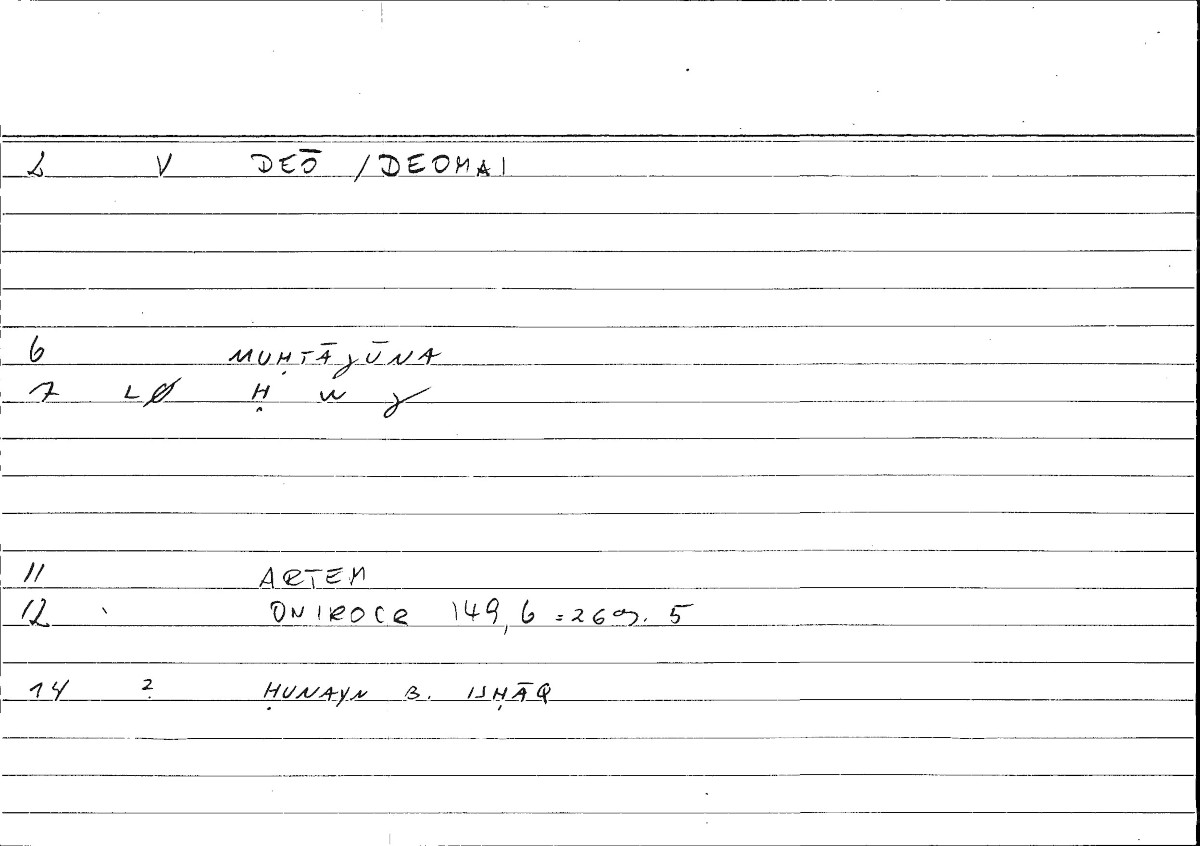 2 V DEŌ / DEOMAI
6 MUḤTĀJŪNA
7 LØ Ḥ W J
11 ARTEM
12 ONIROCR 149, 6 = 269. 5
14 2 ḤUNAYN B. ISḤĀQ